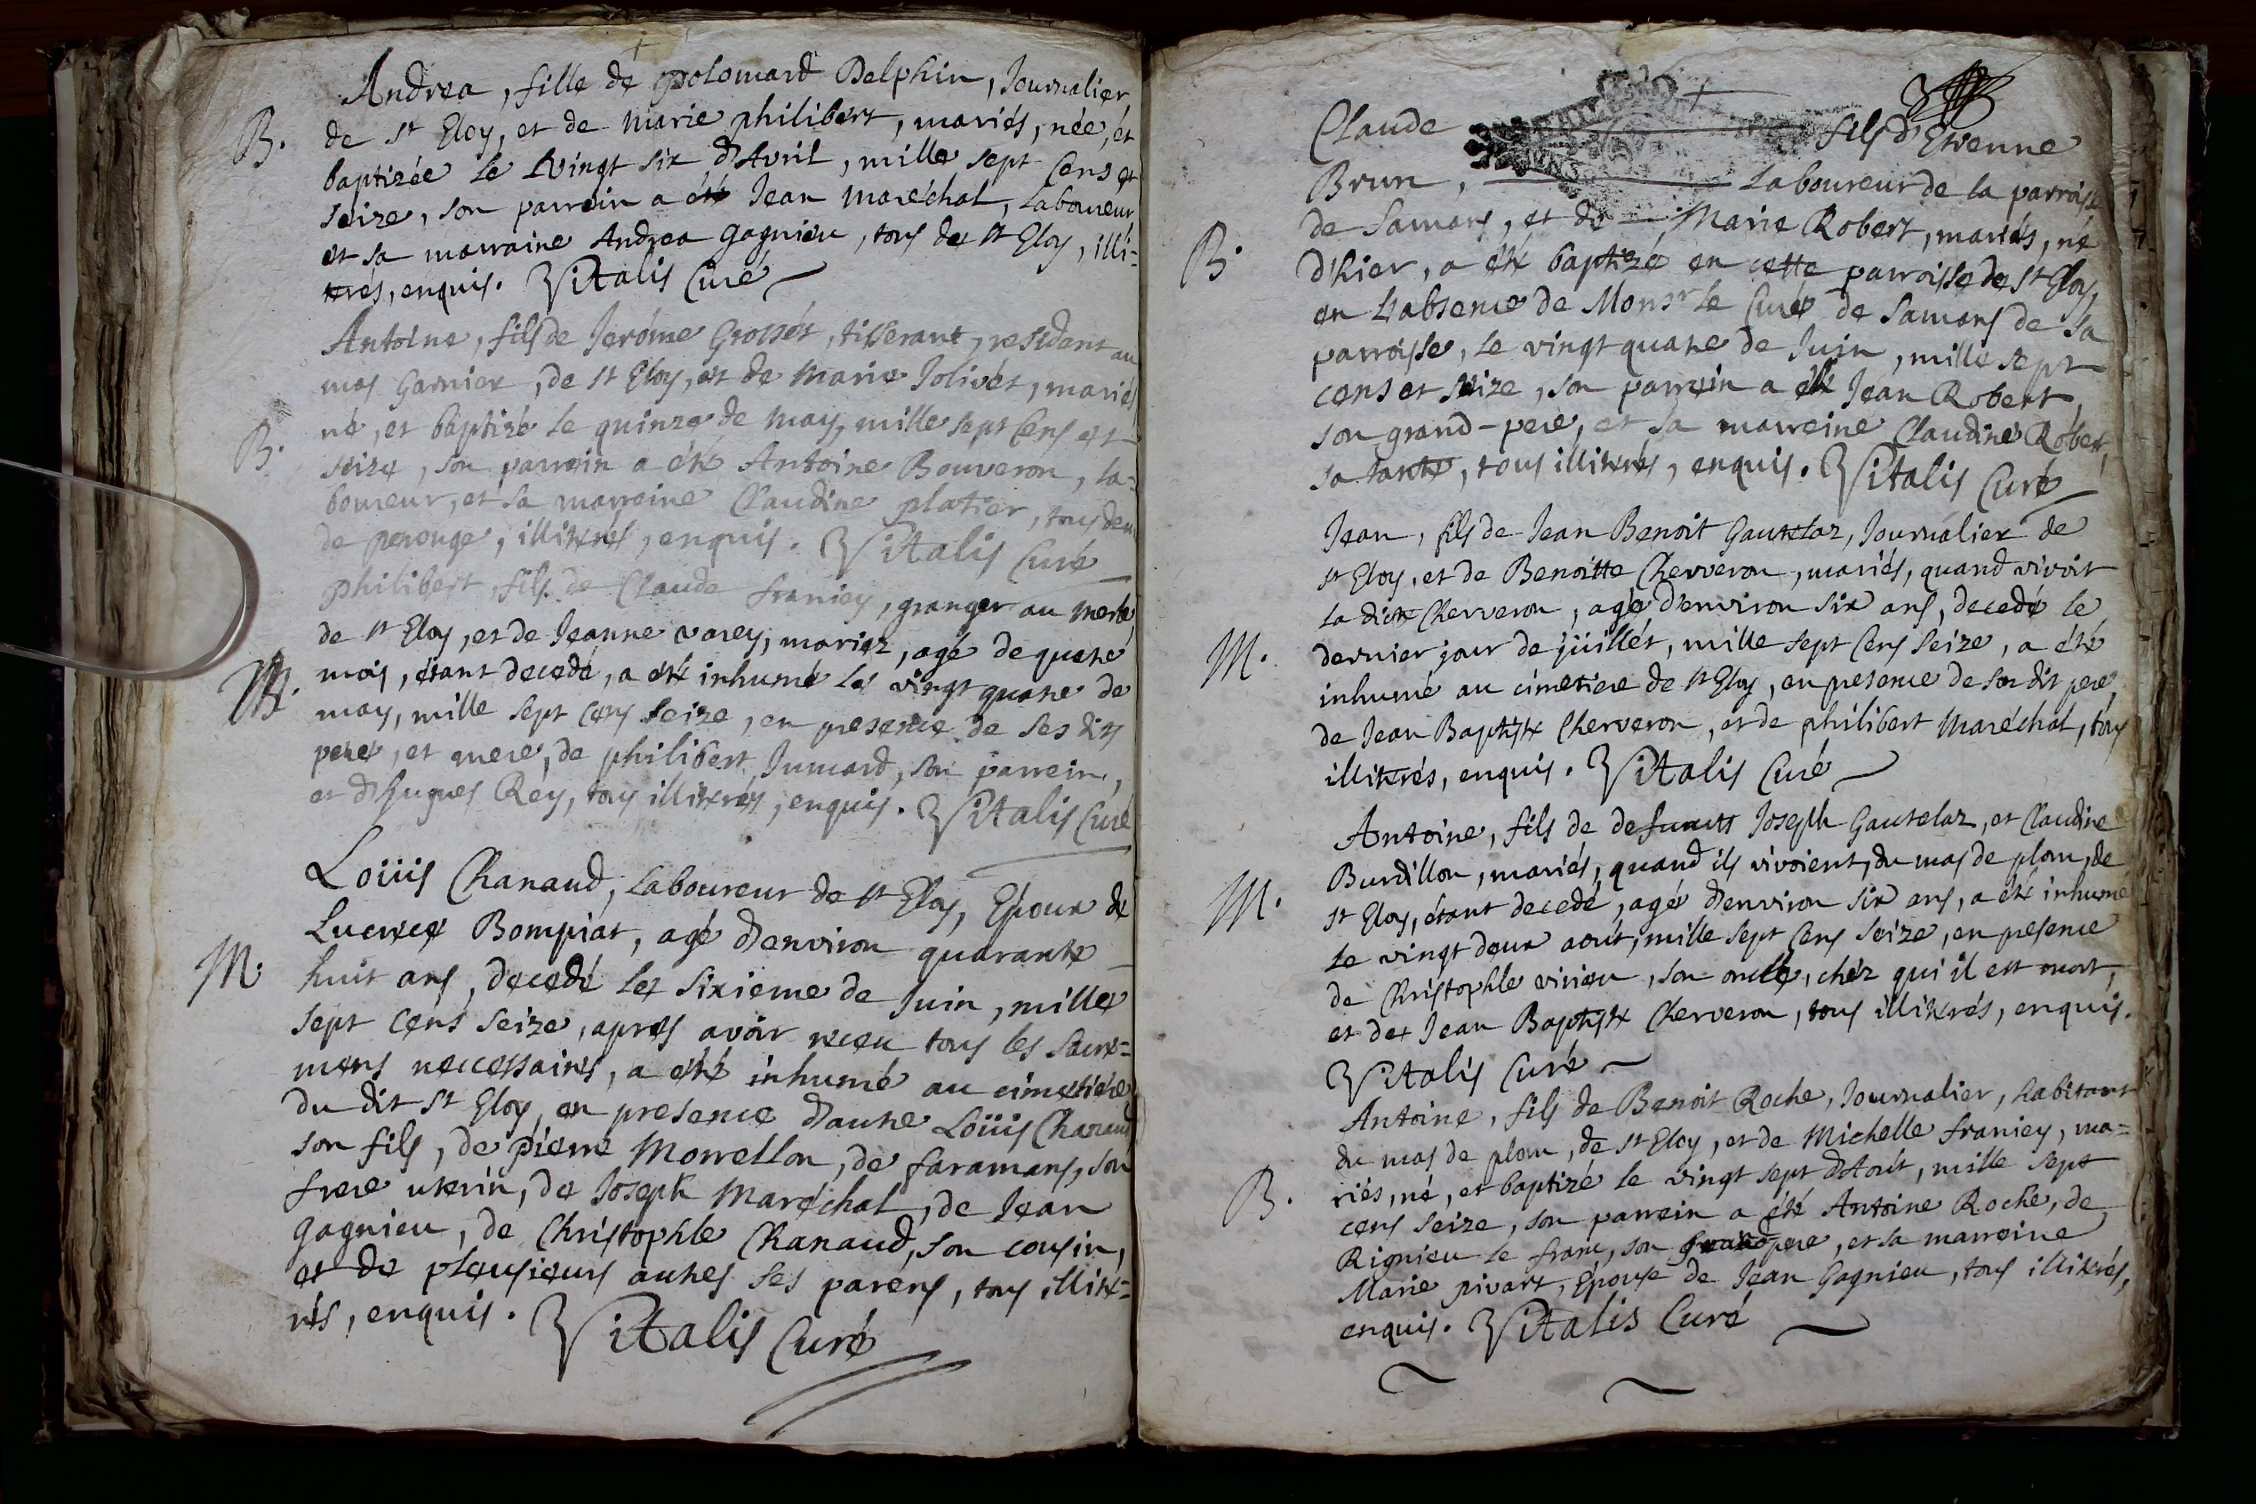 Andrea, fille de polomard Delphin, Journalier
B. de St Eloy, et de Marie philibert, mariés, née, et
baptizée le Vingt six d'Avril, mille sept cens et
seize, son parrein a été Jean Maréchal, Laboureur
et sa marraine Andrea Gagnieu, tous de St Eloy, illi=
trés, enquis. Vitalis Curé
Antoine, fils de Jerôme Grosset, tisserant, residant au
mas Garnier, de St Eloy, et de Marie Jolivet, mariés
B. né, et baptizé le quinze de may, mille sept cens et
seize, son parrein a été Antoine Bouveron, la=
boureur, et sa marreine Claudine platier, tous deux
de perouge, illitrés, enquis. Vitalis Curé
philibert, fils de Claude franiey, granger au
de St Eloy, et de Jeanne varey, mariez, agé de quatre
M. mois, étant decedé, a été inhumé le vingt quatre de
may, mille sept cens seize, en presence de ses dits
pere, et mere, de philibert Jumard, son parrein,
et d'hugues Rey, tous illitrés, enquis. Vitalis Curé
Loüis Chanaud, Laboureur de St Eloy, Epoux de
Lucrece Bompiat, agé d'environ quarante
M. huit ans, decedé le sixieme de Juin, mille
sept cens seize, apres avoir receu tous les sacre=
mens neccessaires, a été inhumé au cimetiére
du dit St Eloy, en presence d'autre Loüis Chanaud
son fils, de pierre Morrellon, de faramans, son
frere uterin, de Joseph Maréchal, de Jean
Gagnieu, de Christophle Chanaud, son cousin,
et de plousieurs autres ses parens, tous illit=
rés, enquis. Vitalis Curé
Claude fils d'Etienne
Brun, Laboureur de la parroisse
de Samans, et de Marie Robert, mariés, né
B. d'hier, a été baptizé en cette parroisse de St Eloy,
en L'absence de Monsr le Curé de Samans de sa
parroisse, le vingt quatre de Juin, mille sept
cens et seize, son parrein a été Jean Robert,
son grand-pere, et sa marreine Claudine Robert,
sa tante, tous illitrés, enquis. Vitalis Curé
Jean, fils de Jean Benoit Gautelaz, Journalier de
St Eloy, et de Benoitte Cherveron, mariés, quand vivoit
la dite Cherveron, agé d'environ six ans, decedé le
M. dernier jour de jüillet, mille sept cens seize, a été
inhumé au cimetiere de St Eloy, en presence de son dit pere,
de Jean Baptiste Cherveron, et de philibert Maréchal, tous
illitrés, enquis. Vitalis Curé
Antoine, fils de defunts Joseph Gautelaz, et Claudine
Burdillon, mariés, quand ils vivoient, du mas de plom, de
M. St Eloy, étant decedé, agé d'environ six ans, a été inhumé
le vingt deux août, mille sept cens seize, en presence
de Christophle virieu, son oncle, chéz qui il est mort,
et de Jean Baptiste Cherveron, tous illitrés, enquis.
Vitalis Curé
Antoine, fils de Benoit Roche, Journalier, habitant
du mas de plom, de St Eloy, et de Michelle franiey, ma=
B. riés, né, et baptizé le vingt sept d'Août, mille sept
cens seize, son parrein a été Antoine Roche, de
Rignieu le franc, son grand pere, et sa marreine
Marie pivart, Epouse de Jean Gagnieu, tous illitrés,
enquis. Vitalis Curé